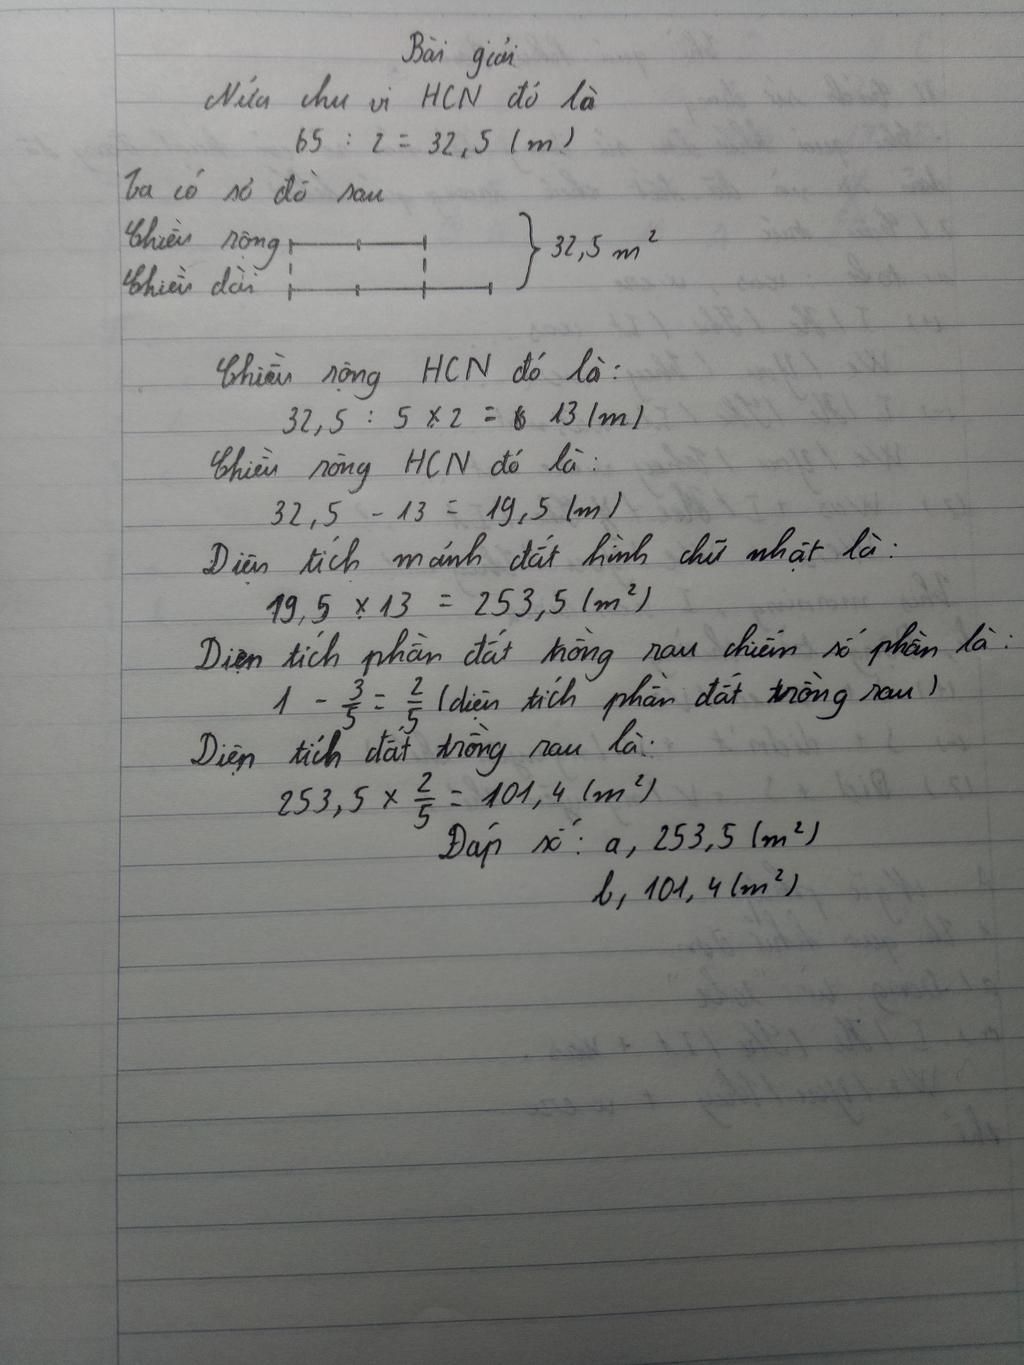 Bài giải
Nửa chu vi HCN đó là
65 : 2 = 32,5 (m)
Ta có sơ đồ sau
Chiều rộng
32,5 m²
Chiều dài
Chiều rộng HCN đó là:
32,5 : 5 × 2 = 13 (m)
Chiều rông HCN đó là:
32,5 - 13 = 19,5 (m)
Diện tích mảnh đất hình chữ nhật là:
19,5 × 13 = 253,5 (m²)
Diện tích phần đất trồng rau chiếm số phần là:
1 - 3/5 = 2/5 (diện tích phần đất trồng rau)
Diện tích đất trồng rau là:
253,5 × 2/5 = 101,4 (m²)
Đáp số: a, 253,5 (m²)
b, 101,4 (m²)